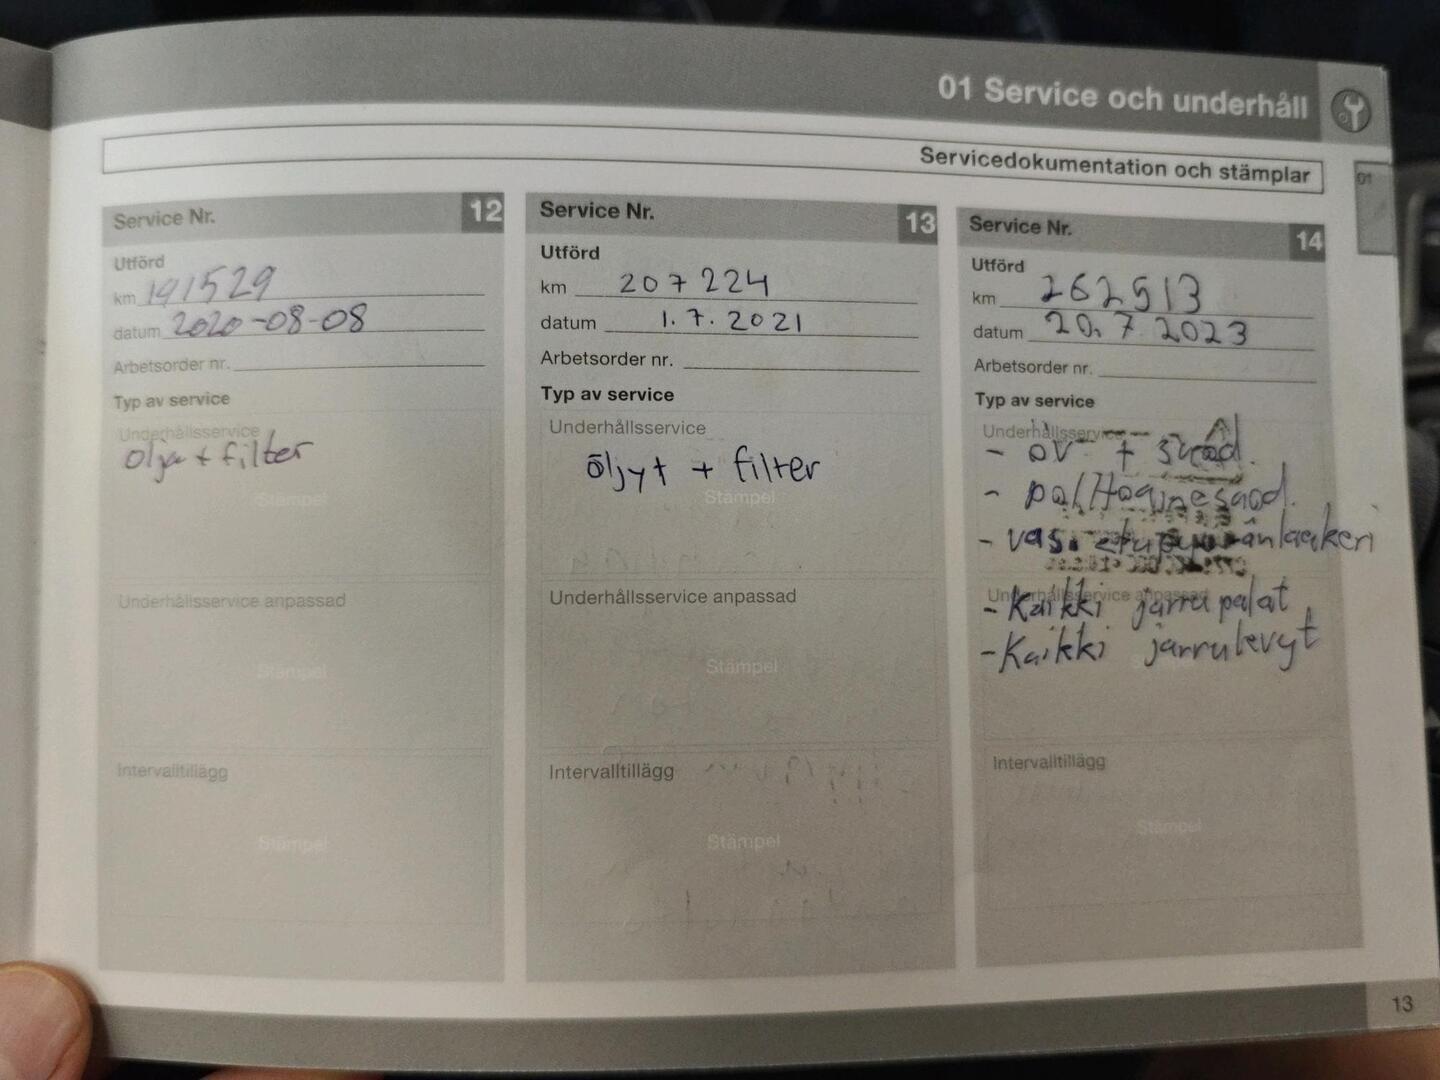 01 Service och underhåll
Servicedokumentation och stämplar
01
Service Nr. 12
Utförd
km 191529
datum 2020-08-08
Arbetsorder nr.
Typ av service
Underhållsservice
olja + filter
Stämpel
Underhållsservice anpassad
Stämpel
Intervalltillägg
Stämpel
Service Nr. 13
Utförd
km 207 224
datum 1.7.2021
Arbetsorder nr.
Typ av service
Underhållsservice
öljyt + filter
Stämpel
Underhållsservice anpassad
Stämpel
Intervalltillägg
Stämpel
Service Nr. 14
Utförd
km 262513
datum 20.7.2023
Arbetsorder nr.
Typ av service
Underhållsservice
- öv +
- vas.
Underhållsservice anpassad
- Kaikki jarrupalat
- Kaikki jarrulevyt
Intervalltillägg
Stämpel
13